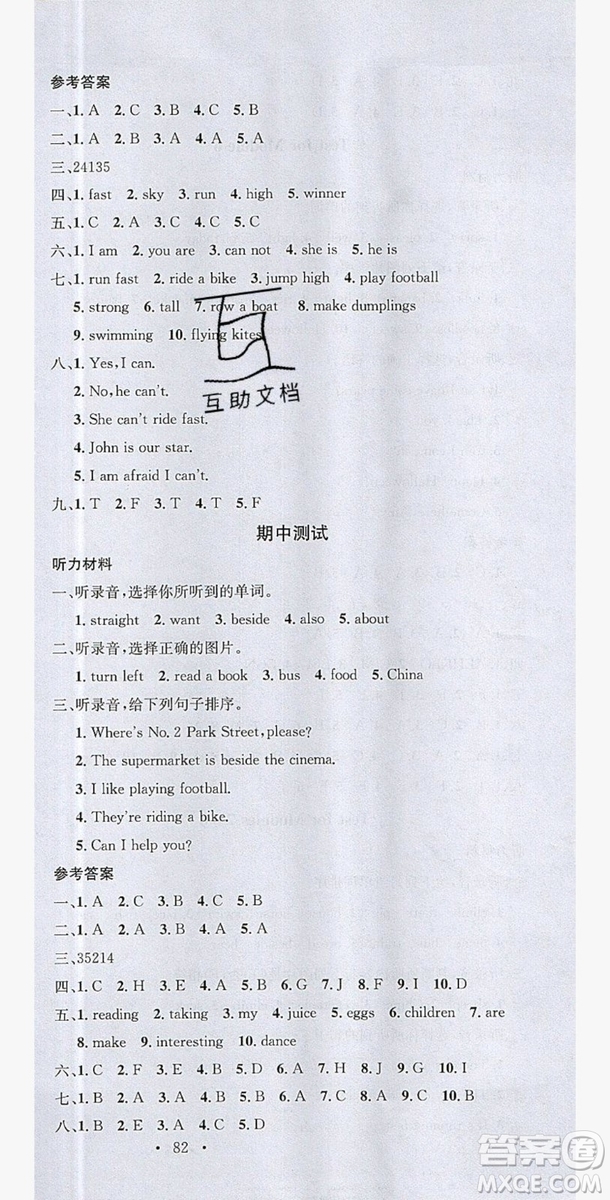 参考答案
一、1. A 2. C 3. B 4. C 5. B
二、1. A 2. C 3. B 4. A 5. A
三、24135
四、1. fast 2. sky 3. run 4. high 5. winner
五、1. C 2. A 3. C 4. B 5. C
六、1. I am 2. you are 3. can not 4. she is 5. he is
七、1. run fast 2. ride a bike 3. jump high 4. play football
5. strong 6. tall 7. row a boat 8. make dumplings
9. swimming 10. flying kites
互助文档
八、1. Yes, I can.
2. No, he can't.
3. She can't ride fast.
4. John is our star.
5. I am afraid I can't.
九、1. T 2. F 3. T 4. T 5. F
期中测试
听力材料
一、听录音,选择你所听到的单词。
1. straight 2. want 3. beside 4. also 5. about
二、听录音,选择正确的图片。
1. turn left 2. read a book 3. bus 4. food 5. China
三、听录音,给下列句子排序。
1. Where's No. 2 Park Street, please?
2. The supermarket is beside the cinema.
3. I like playing football.
4. They're riding a bike.
5. Can I help you?
参考答案
一、1. A 2. C 3. B 4. C 5. B
二、1. A 2. B 3. C 4. A 5. B
三、35214
四、1. C 2. H 3. E 4. B 5. G 6. J 7. F 8. A 9. I 10. D
五、1. reading 2. taking 3. my 4. juice 5. eggs 6. children 7. are
8. make 9. interesting 10. dance
六、1. C 2. F 3. A 4. D 5. B 6. E 7. J 8. H 9. G 10. I
七、1. B 2. B 3. A 4. B 5. A 6. B 7. C 8. C 9. B 10. A
八、1. B 2. D 3. A 4. E 5. C
· 82 ·
答案圈
MXQE.COM